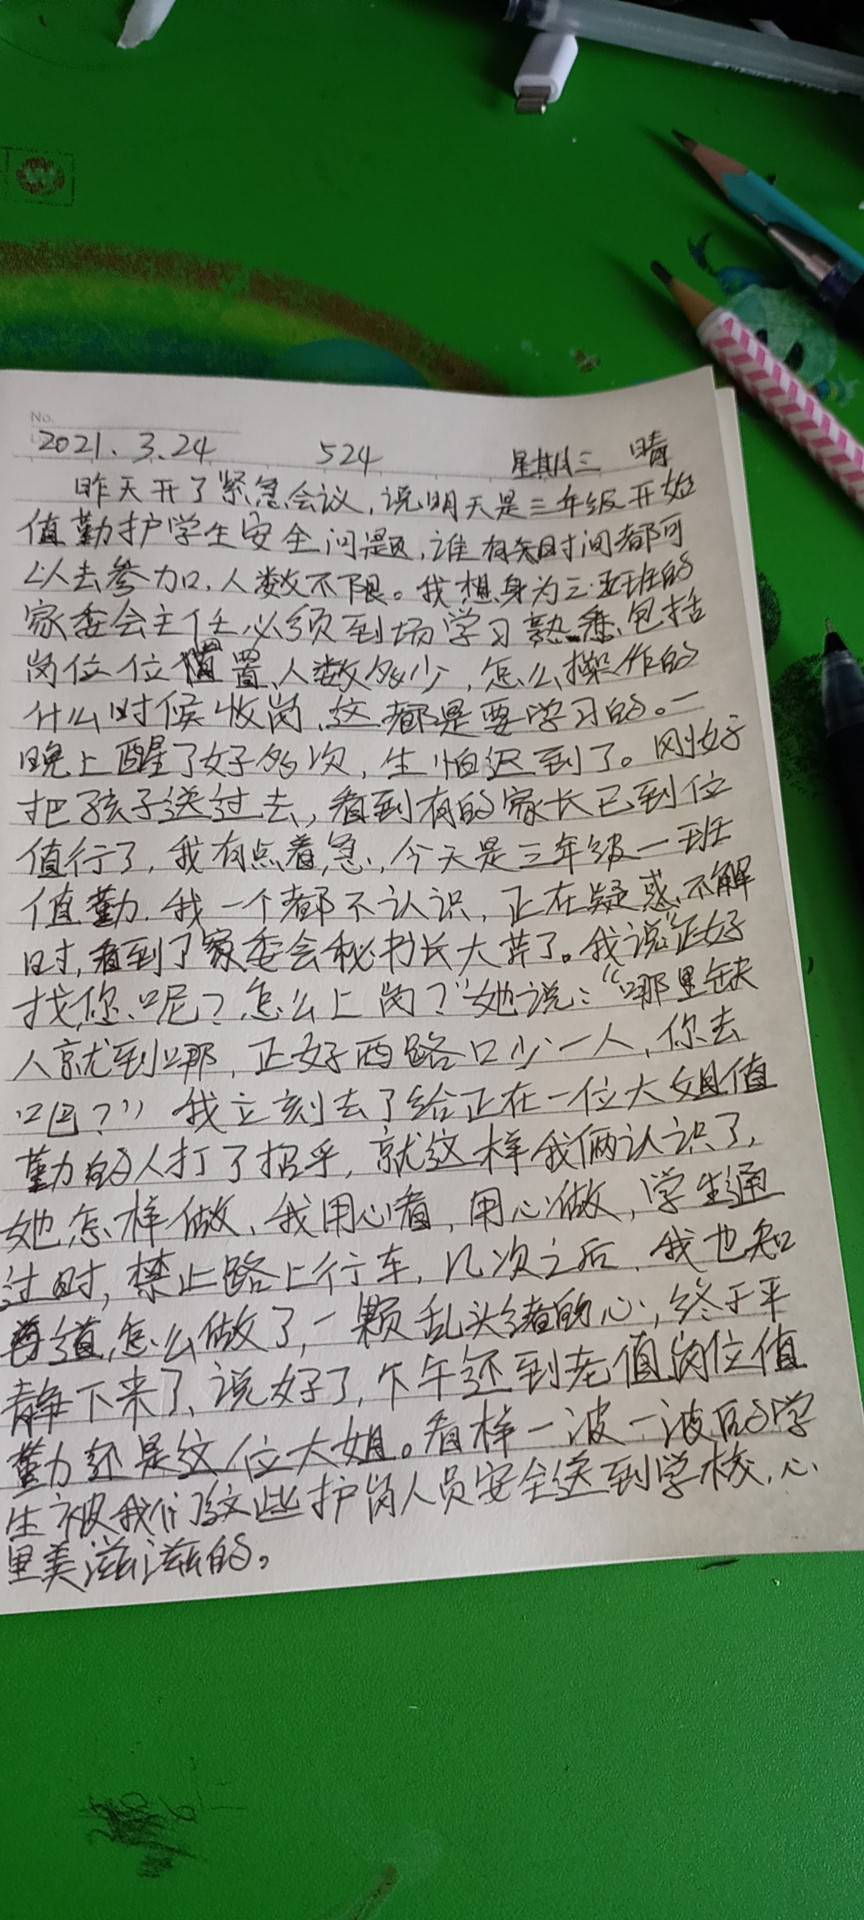 No.
2021.3.24 524 星期三 晴
昨天开了紧急会议,说明天是三年级开始
值勤护学生安全问题,谁有时间都可
以去参加,人数不限。我想身为三五班的
家委会主任必须到场学习熟悉,包括
岗位位置、人数多少,怎么操作的
什么时候收岗,这都是要学习的。一
晚上醒了好多次,生怕迟到了。刚好
把孩子送过去,看到有的家长已到位
值行了,我有点着急,今天是三年级一班
值勤,我一个都不认识,正在疑惑不解
时,看到了家委会秘书长大芹了。我说“正好
找你呢?怎么上岗?”她说:“哪里缺
人就到哪,正好西路口少一人,你去
吧?”我立刻去了给正在一位大姐值
勤的人打了招乎,就这样我俩认识了,
她怎样做、我用心看,用心做,学生通
过时,禁止路上行车,几次之后,我也知
道,怎么做了,一颗乱头绪的心,终于平
静下来了、说好了,下午还到老值岗位值
勤还是这位大姐。看样一波一波的学
生被我们这些护岗人员安全送到学校,心
里美滋滋的。